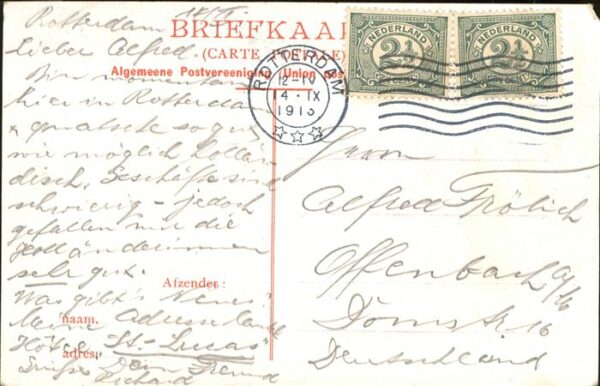 Rotterdam 14/IX.
BRIEFKAA
(CARTE POSTALE)
Algemeene Postvereeniging Union pos
NEDERLAND
2½
NEDERLAND
2½
ROTTERDAM
12-1V
14·IX
191
Lieber Alfred
Bin momentan
hier in Rotterdam
quatsche so gut
wie möglich hollän
disch. Geschäfte sind
schwierig - jedoch
gefallen mir die
Holländerinnen
sehr gut.
Was gibt's Neues?
Meine Adresse lautet
Hôtel "St-Lucas"
Dein Freund
Richard
Afzender:
naam.
adres:
Herrn
Alfred Frölich
Offenbach a/M
Domstr 16
Deutschland